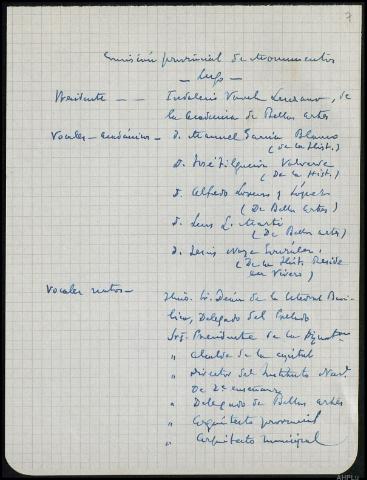 7
Comisión provincial de Monumentos
- Lugo -
Presidente - - Indalecio Varela Lenzano, de
la Academia de Bellas artes
Vocales-académicos - D. Manuel García Blanco
(de la Hist.)
D. José Filgueira Valverde
(De la Hist.)
D. Alfredo y López
(De Bellas artes)
D. Luis L. Martí
(De Bellas artes)
D.
(De la Hist. Reside
en Vivero)
Vocales natos - Ilmo. Sr. Deán de la Catedral Basí-
lica, Delegado del Prelado
Sr. Presidente de la Diputon
" alcalde de la capital
" Director del Instituto Nacl
De 2ª enseñanza
" Delegado de Bellas artes
" Arquitecto provincial
" Arquitecto municipal
AHPLu